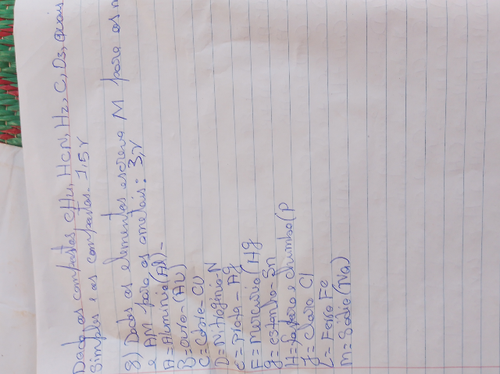 Dada as compostas CH4, HCN, H2, C, O3, quais
Simples e as compostas - 1,5v
8) Dadas as elementos escreva M para os m
e AM para os ametais: 3,v
A= Aluminio (Al) -
B= ouro- (AU)
C= Cobre- CU
D= Nitroginio- N
E= Prata - Ag
F= Mercurio (Hg
g= estanho- Sn
H= fosforo e chumbo (P
J= Cloro Cl
L= Ferro Fe
M= Sodio (Na)